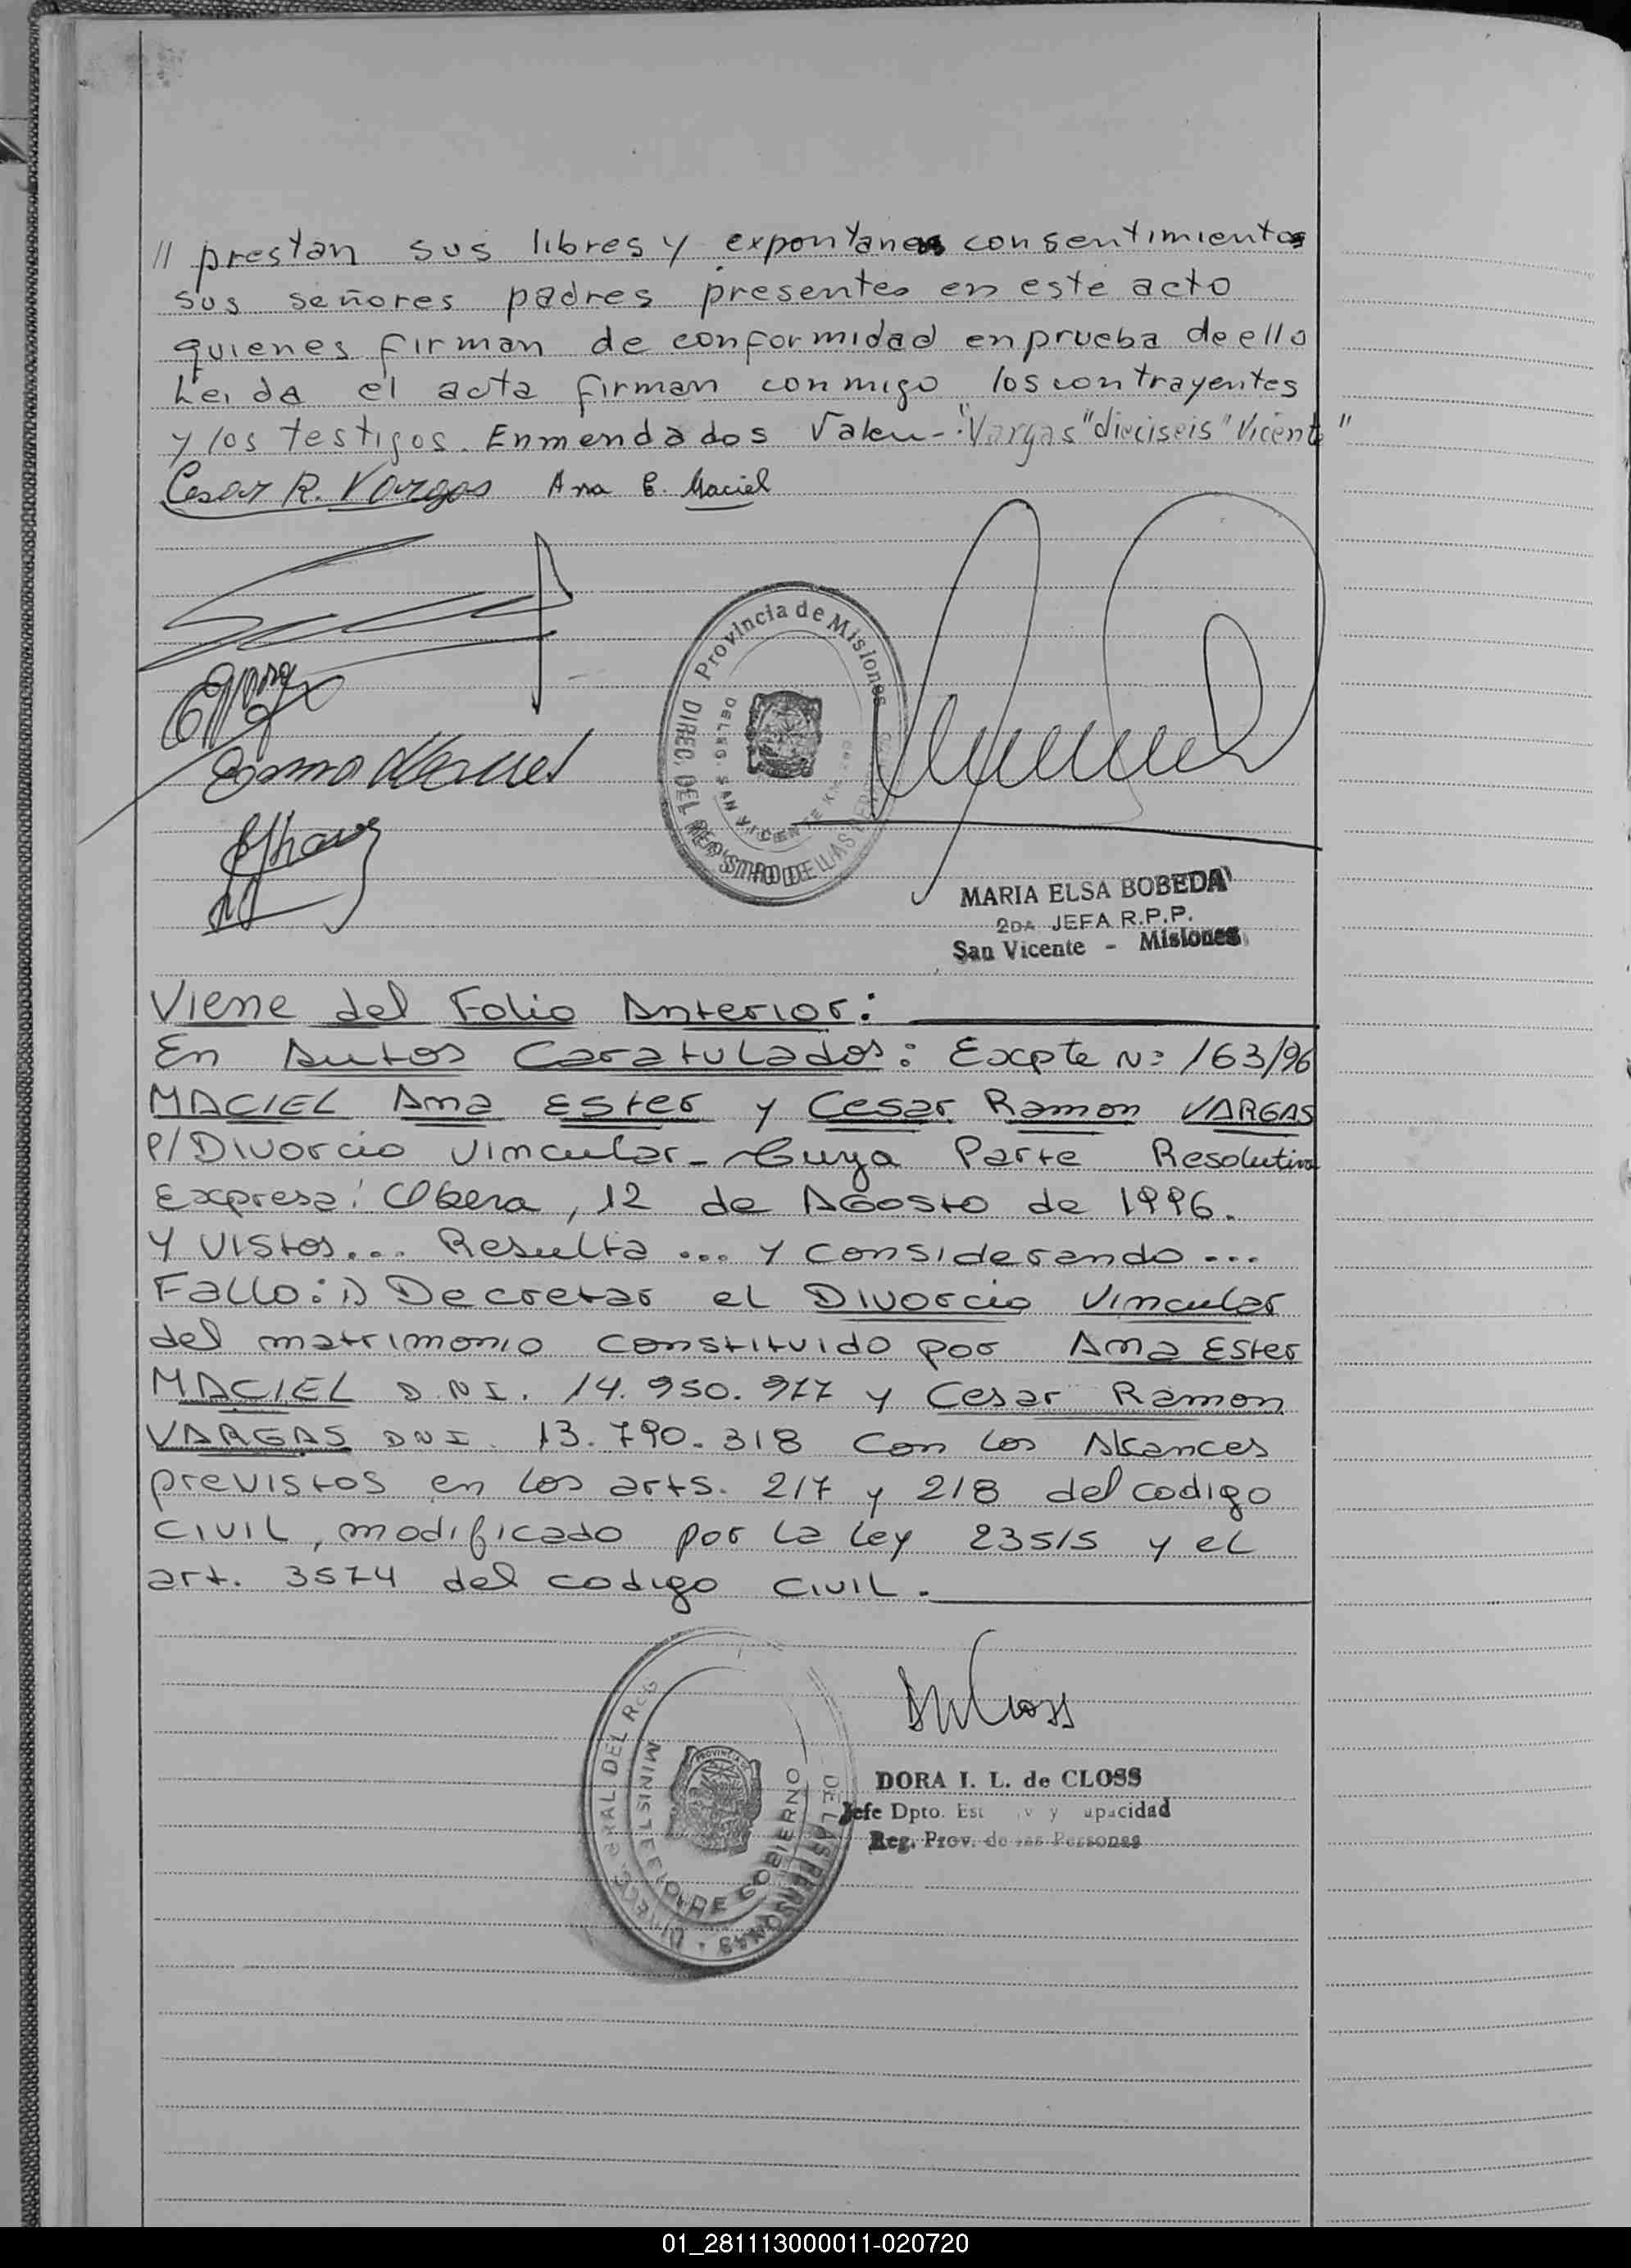 // prestan sus libres y expontaneos consentimientos
sus señores padres presentes en este acto
quienes firman de conformidad en prueba de ello
Leida el acta firman conmigo los contrayentes
y los testigos. Enmendados Valen-"Vargas" "dieciseis" "Vicente"
Cesar R. Vargas Ana E. Maciel
Provincia de Misiones
DIREC. DEL REGISTRO DE LAS
DELEG. SAN VICENTE
MARIA ELSA BOBEDA
2DA JEFA R.P.P.
San Vicente - Misiones
Viene del Folio Anterior:
En Autos Caratulados: Excpte Nº 163/96
MACIEL Ana Ester y Cesar Ramon VARGAS
P/Divorcio Vincular- Cuya Parte Resolutiva
Expresa: Obera, 12 de Agosto de 1996.
Y Vistos... Resulta ... y considerando...
Fallo: 1) Decretar el Divorcio Vincular
del matrimonio constituido por Ana Ester
MACIEL D.N.I. 14.950.977 y Cesar Ramon
VARGAS DNI. 13.790.318 con los Alcances
previstos en los arts. 217 y 218 del codigo
civil, modificado por la ley 23515 y el
art. 3574 del codigo civil.
DEL REG
DE LAS PERSONAS
DE GOBIERNO
PROVINCIA
DORA I. L. de CLOSS
Jefe Dpto. Est v y apacidad
Reg. Prov. de las Personas
01_281113000011-020720